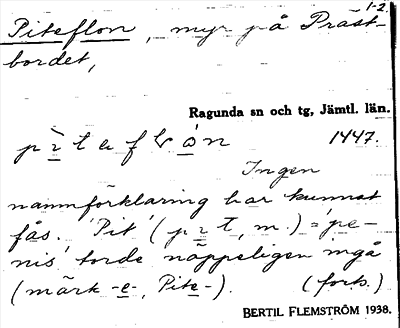 1-2.
Piteflon, myr på Präst-
bordet,
Ragunda sn och tg, Jämtl. län.
1447.
Ingen
namnförklaring har kunnat
fås. 'Pit' (       , m.) = 'pe-
nis' torde näppeligen ingå
(märk -e-, Pite-). (forts.)
BERTIL FLEMSTRÖM 1938.